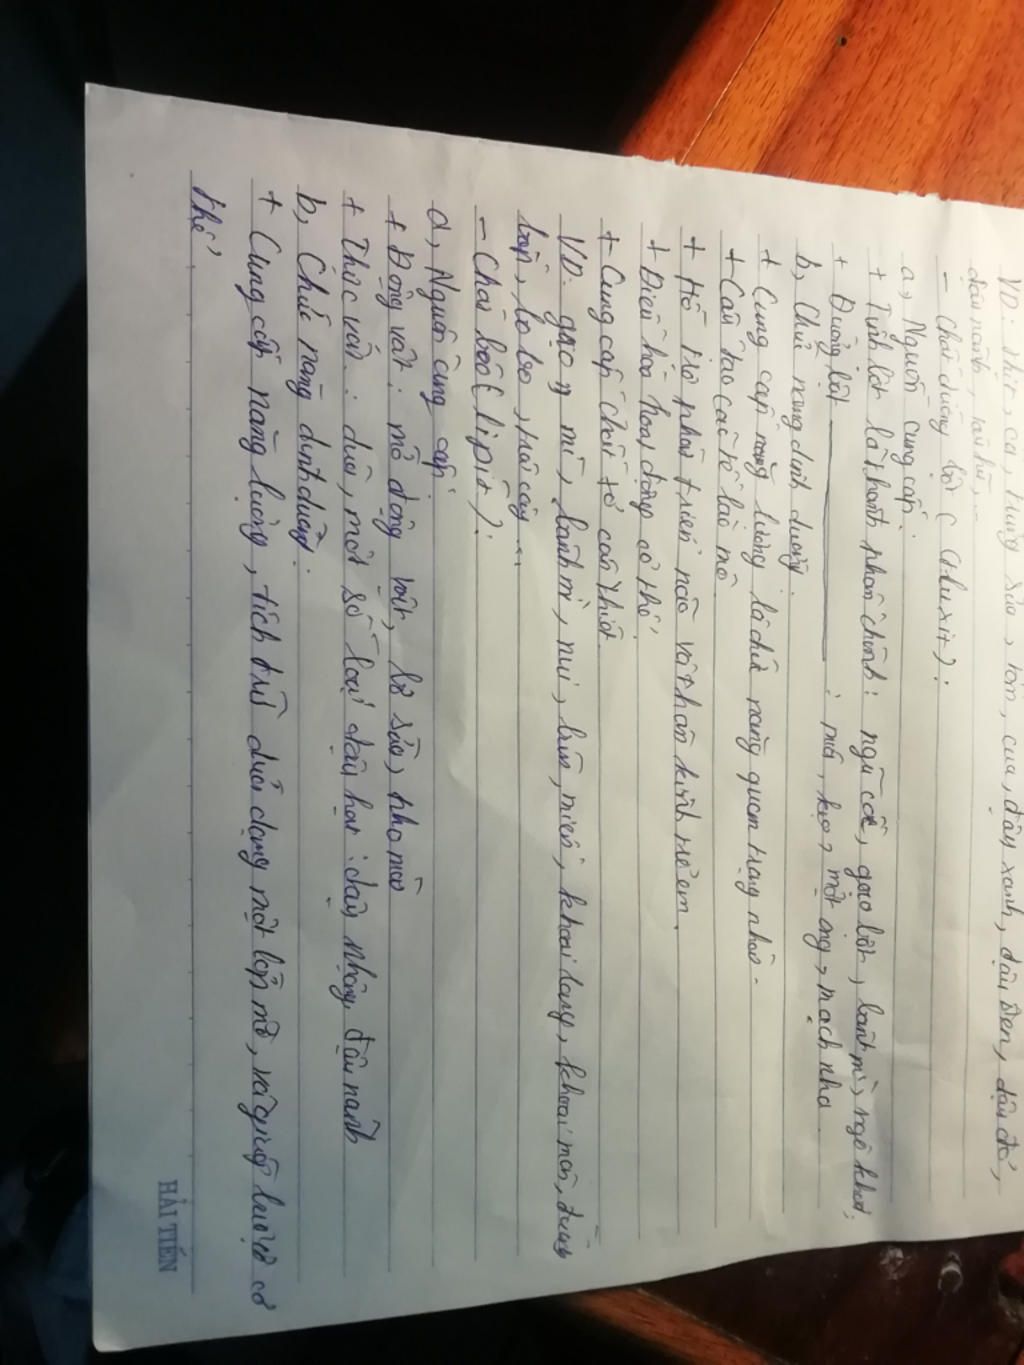 VD: thịt, cá, trứng sữa, tôm, cua, đậu xanh, đậu đen, đậu đỏ,
đậu nành,
- Chất đường bột (Gluxit):
a, Nguồn cung cấp.
+ Tinh bột là thành phần chính: ngũ cốc, gạo bột, bánh mì, ngô khoai;
+ Đường bột : mía, kẹo, mật ong, mạch nha.
b, Chức năng dinh dưỡng.
+ Cung cấp năng lượng là chức năng quan trọng nhất.
+ Cấu tạo các tế bào mô
+ Hỗ trợ phát triển não và thần kinh trẻ em.
+ Điều hòa hoạt động cơ thể.
+ Cung cấp chất cần thiết.
VD: gạo mì, bánh mì, nui, bún, miến, khoai lang, khoai môn,
bắp, bo bo, trái cây...
- Chất béo (lipit):
a, Nguồn cung cấp.
+ Động vật: mỡ động vật, bơ sữa, pho mát
+ Thực vật: dừa, một số loại đậu hạt: đậu phộng, đậu nành
b, Chức năng dinh dưỡng:
+ Cung cấp năng lượng, tích trữ dưới dạng một lớp mỡ, và giúp cơ
thể.
HẢI TIẾN